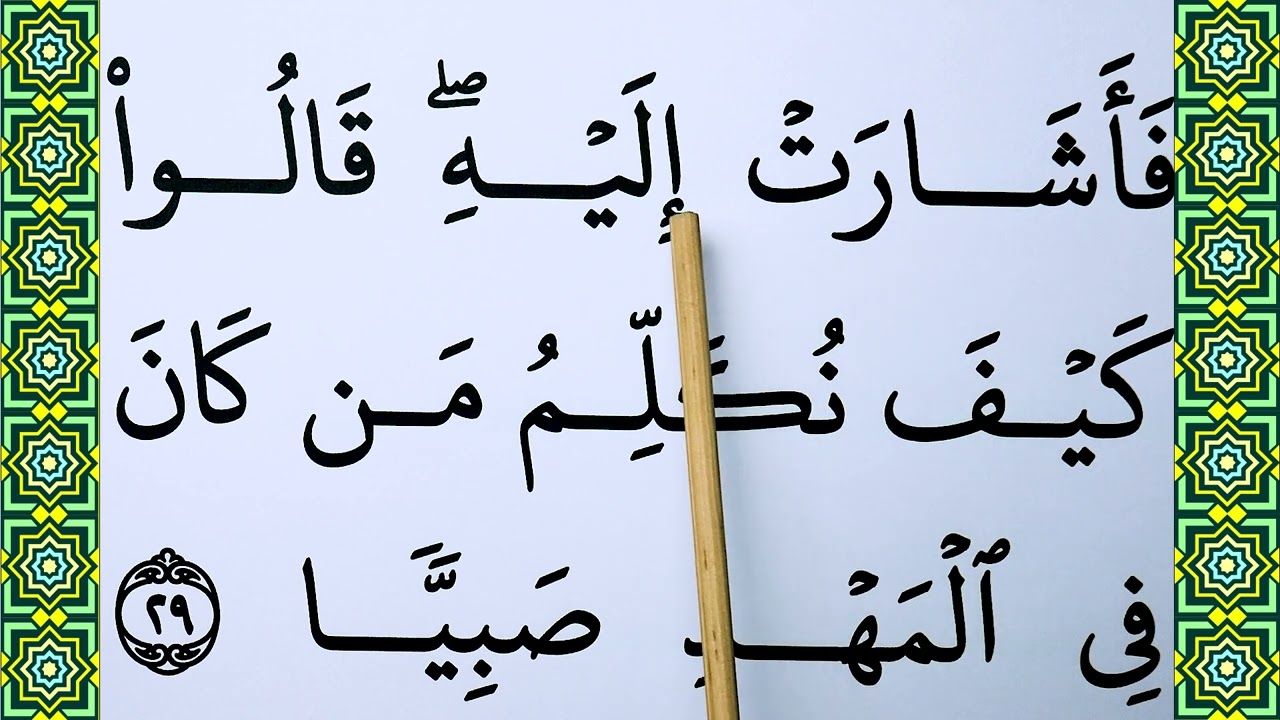 فَأَشَارَتْ إِلَيْهِ ۖ قَالُوا۟
كَيْفَ نُكَلِّمُ مَن كَانَ
فِى ٱلْمَهْدِ صَبِيًّا ٢٩